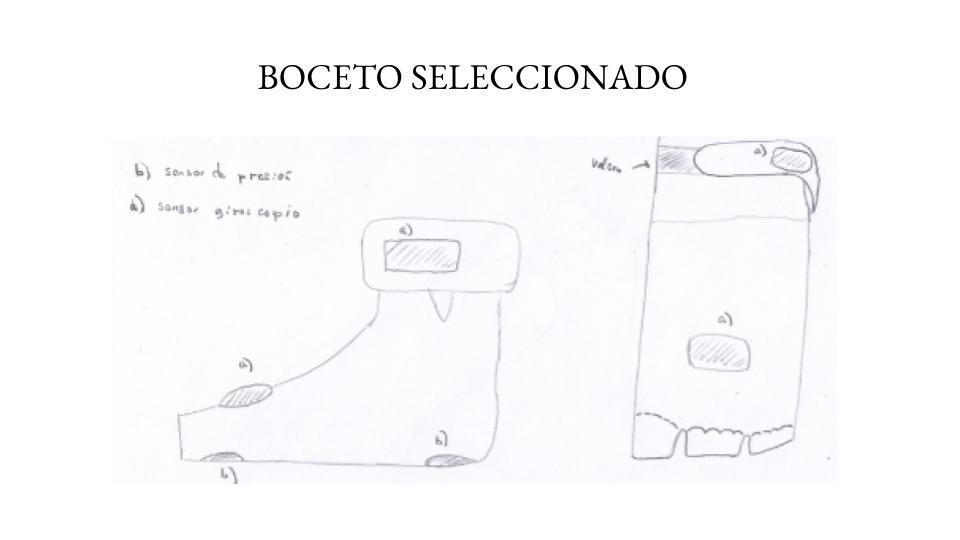 BOCETO SELECCIONADO
b) sensor de presión
a) sensor giroscopio
a)
a)
b)
b)
a)
a)